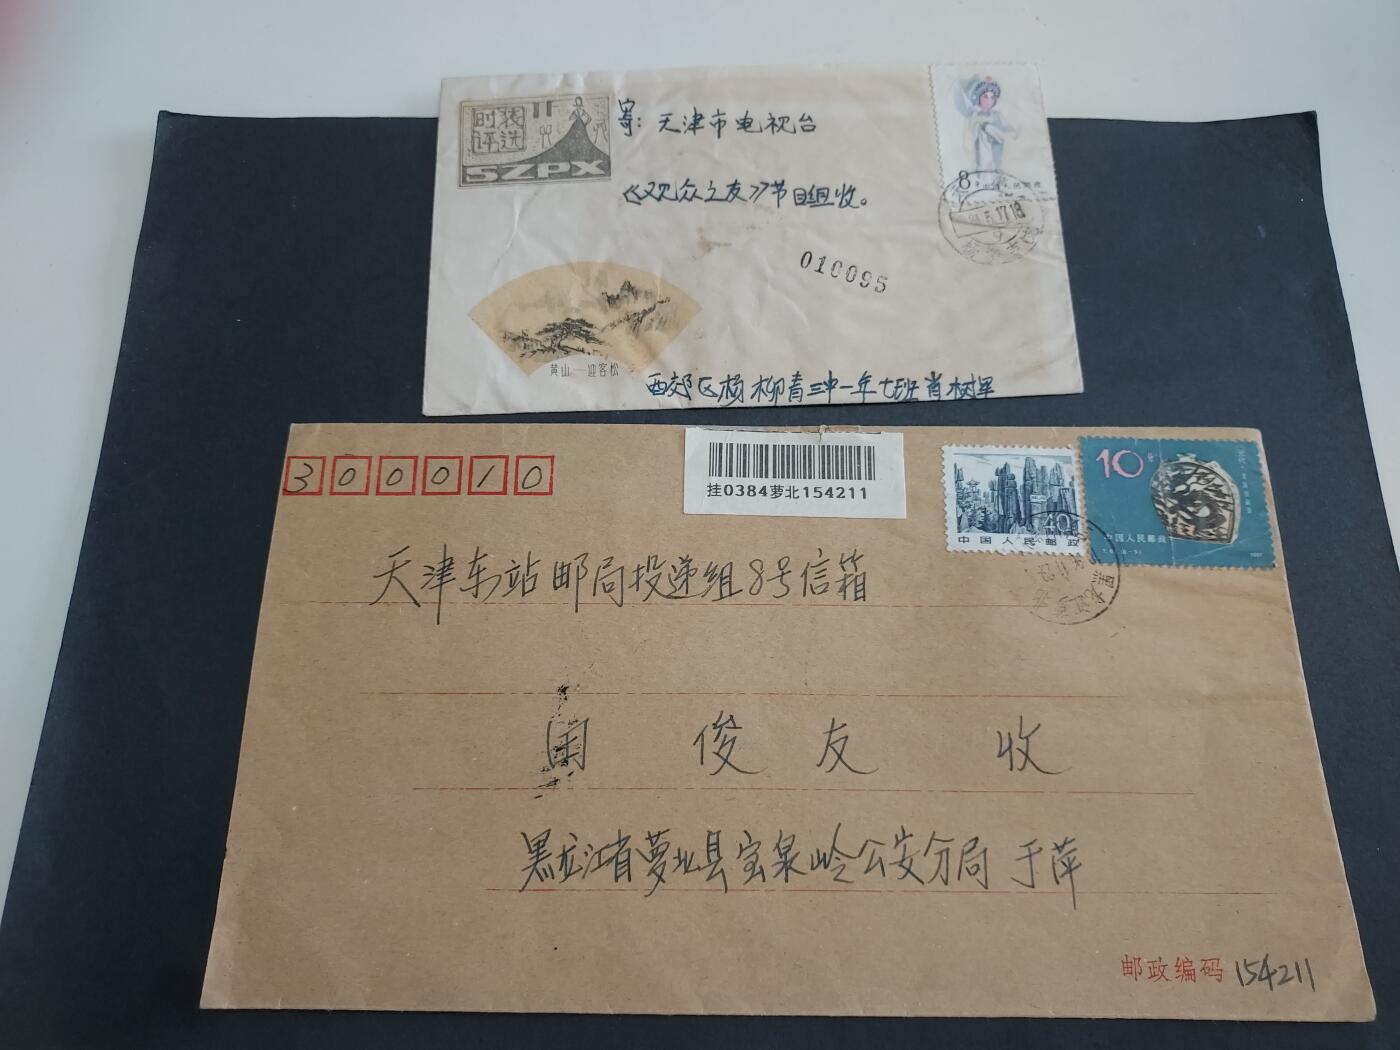 时装
评选
SZPX
寄：天津市电视台
《观众之友》节目组收。
8分中国人民邮政
010095
黄山—迎客松
西郊区杨柳青三中一年七班肖树军
300010
挂0384萝北154211
40
中国人民邮政
10分
中国人民邮政
天津东站邮局投递组8号信箱
俊友 收
黑龙江省萝北县宝泉岭公安分局 于萍
邮政编码 154211